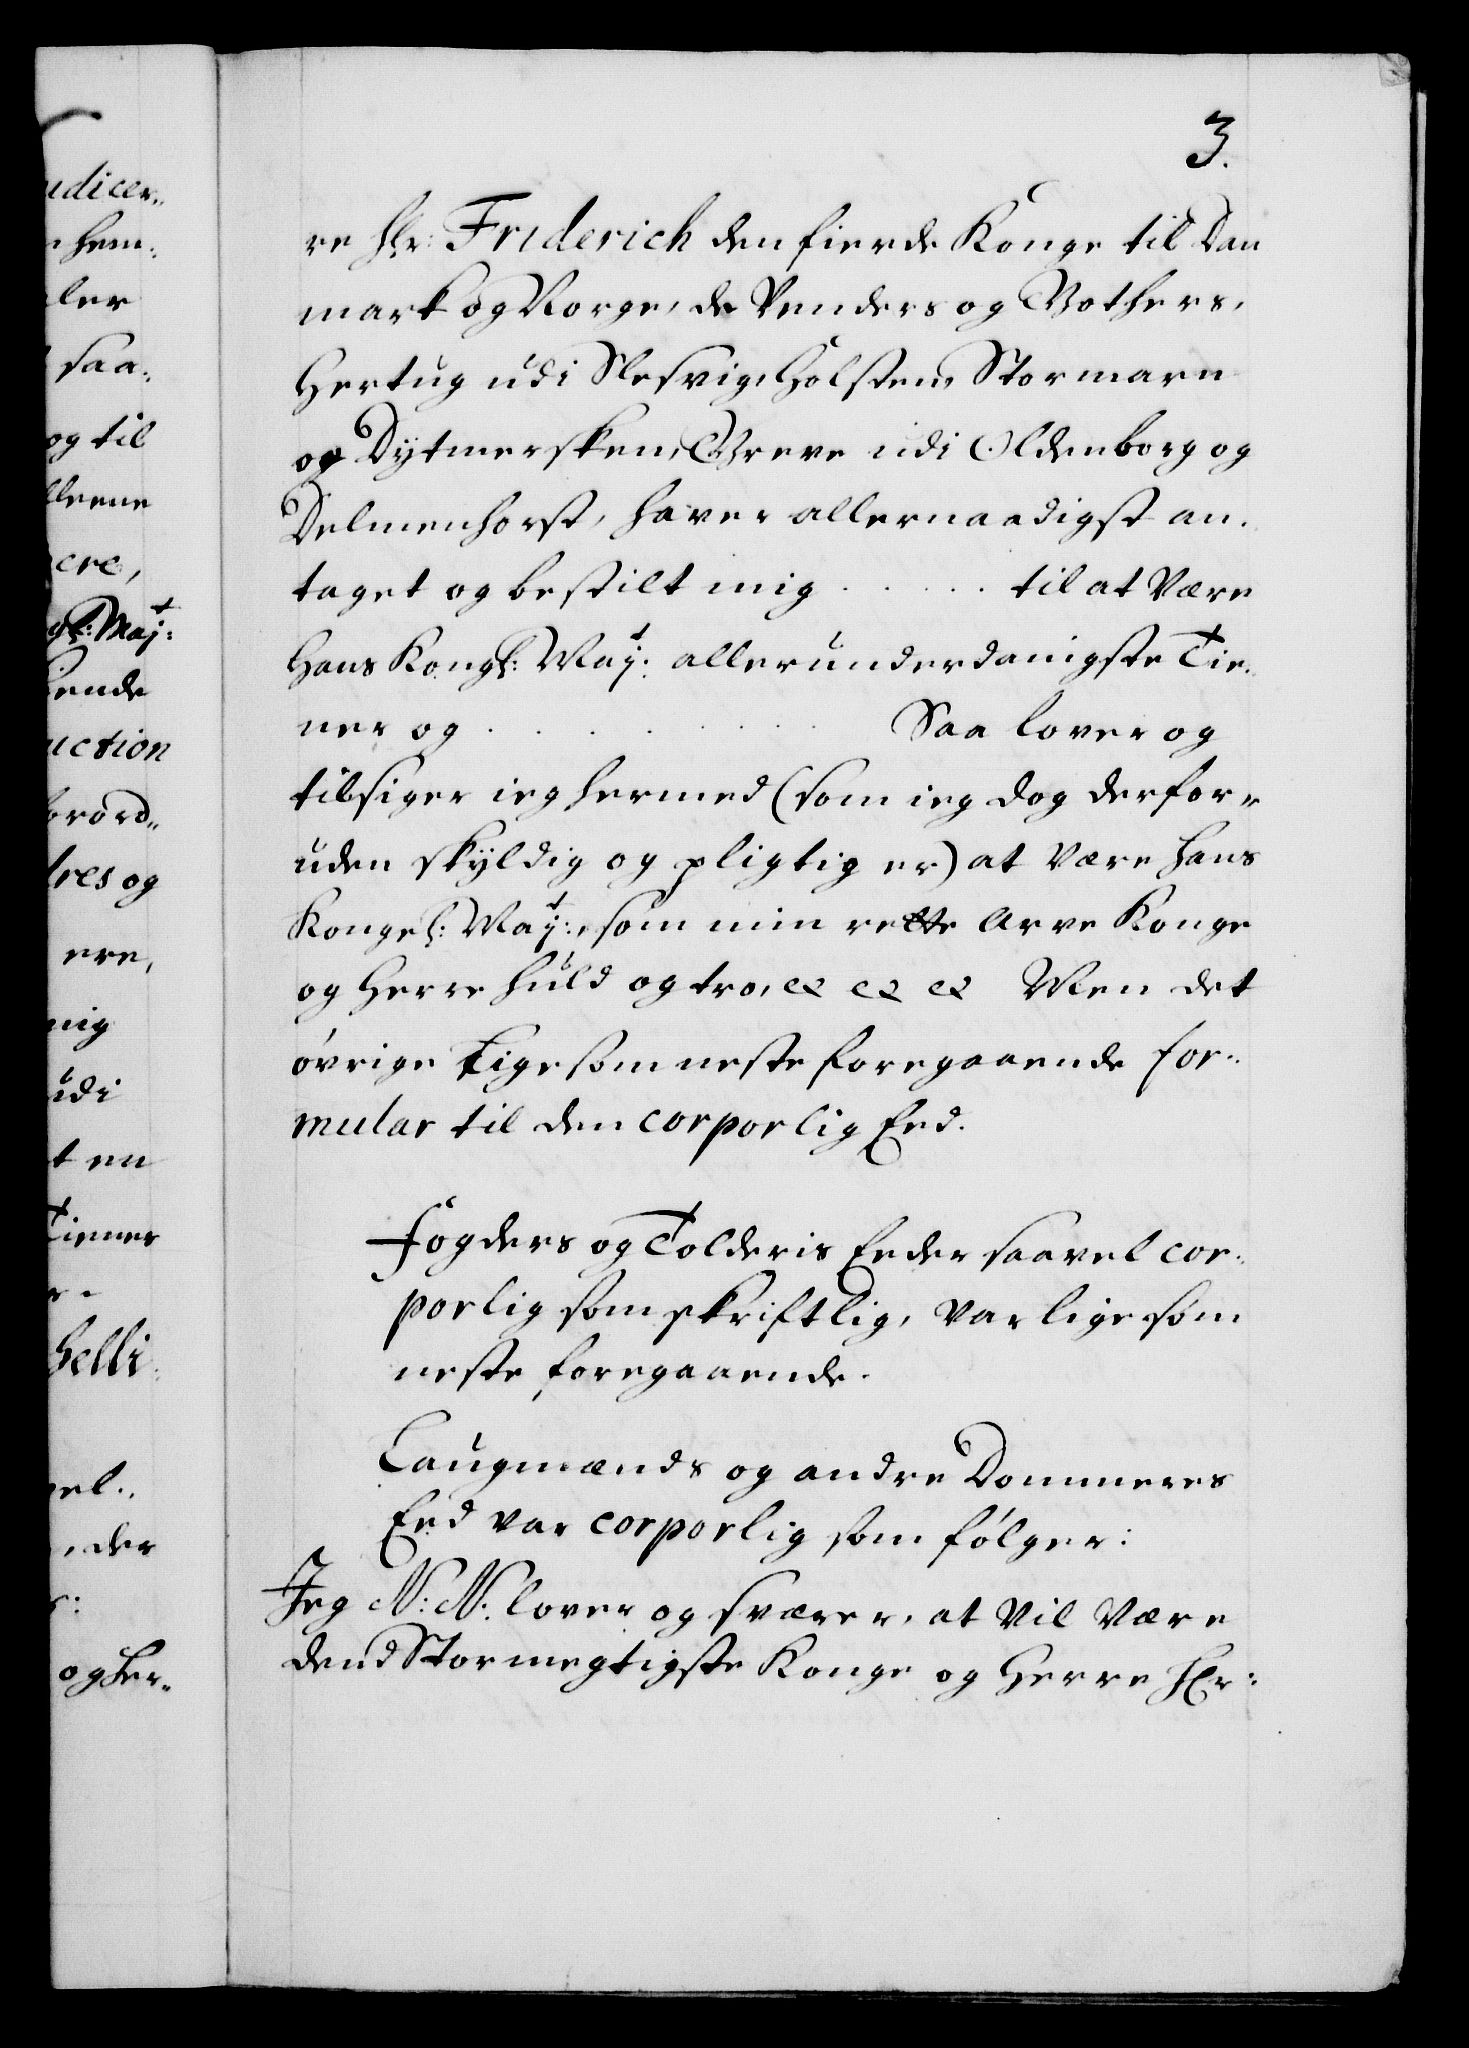 3.
re Hr: Friderich den fierde Konge til Dan
mark og Norge, de Venders og Gothers,
Hertug udi Slesvig, Holsten, Stormarn
og Dytmersken, Greve udi Oldenborg og
Delmenhorst, haver allernaadigst an-
taget og bestilt mig . . . . . til at være
Hans Kongl: Maj:t allerunderdanigste Tie-
ner og . . . . . . . Saa lover og
tilsiger ieg hermed (som ieg dog derfor-
uden skyldig og pligtig er) at være Hans
Kongel: Maj:t, som min rette Arve Konge
og Herre huld og tro, etc etc etc Men det
øvrige ligesom neste foregaaende for-
mular til den corporlig Eed.
Fogders og Tolderis Eeder saavel cor-
porlig som skriftlig, var lige som
neste foregaaende.
Laugmænds og andre Dommeres
Eed var corporlig som følger:
Jeg N: N: lover og sværer, at vil være
dend Stormegtigste Konge og Herre Hr:
udicer-
saa-
og til
lleene
ere,
gl: Maj:t
uction
orord-
dres og
ere,
mig
udi
t en
Tiener
der
og Her-